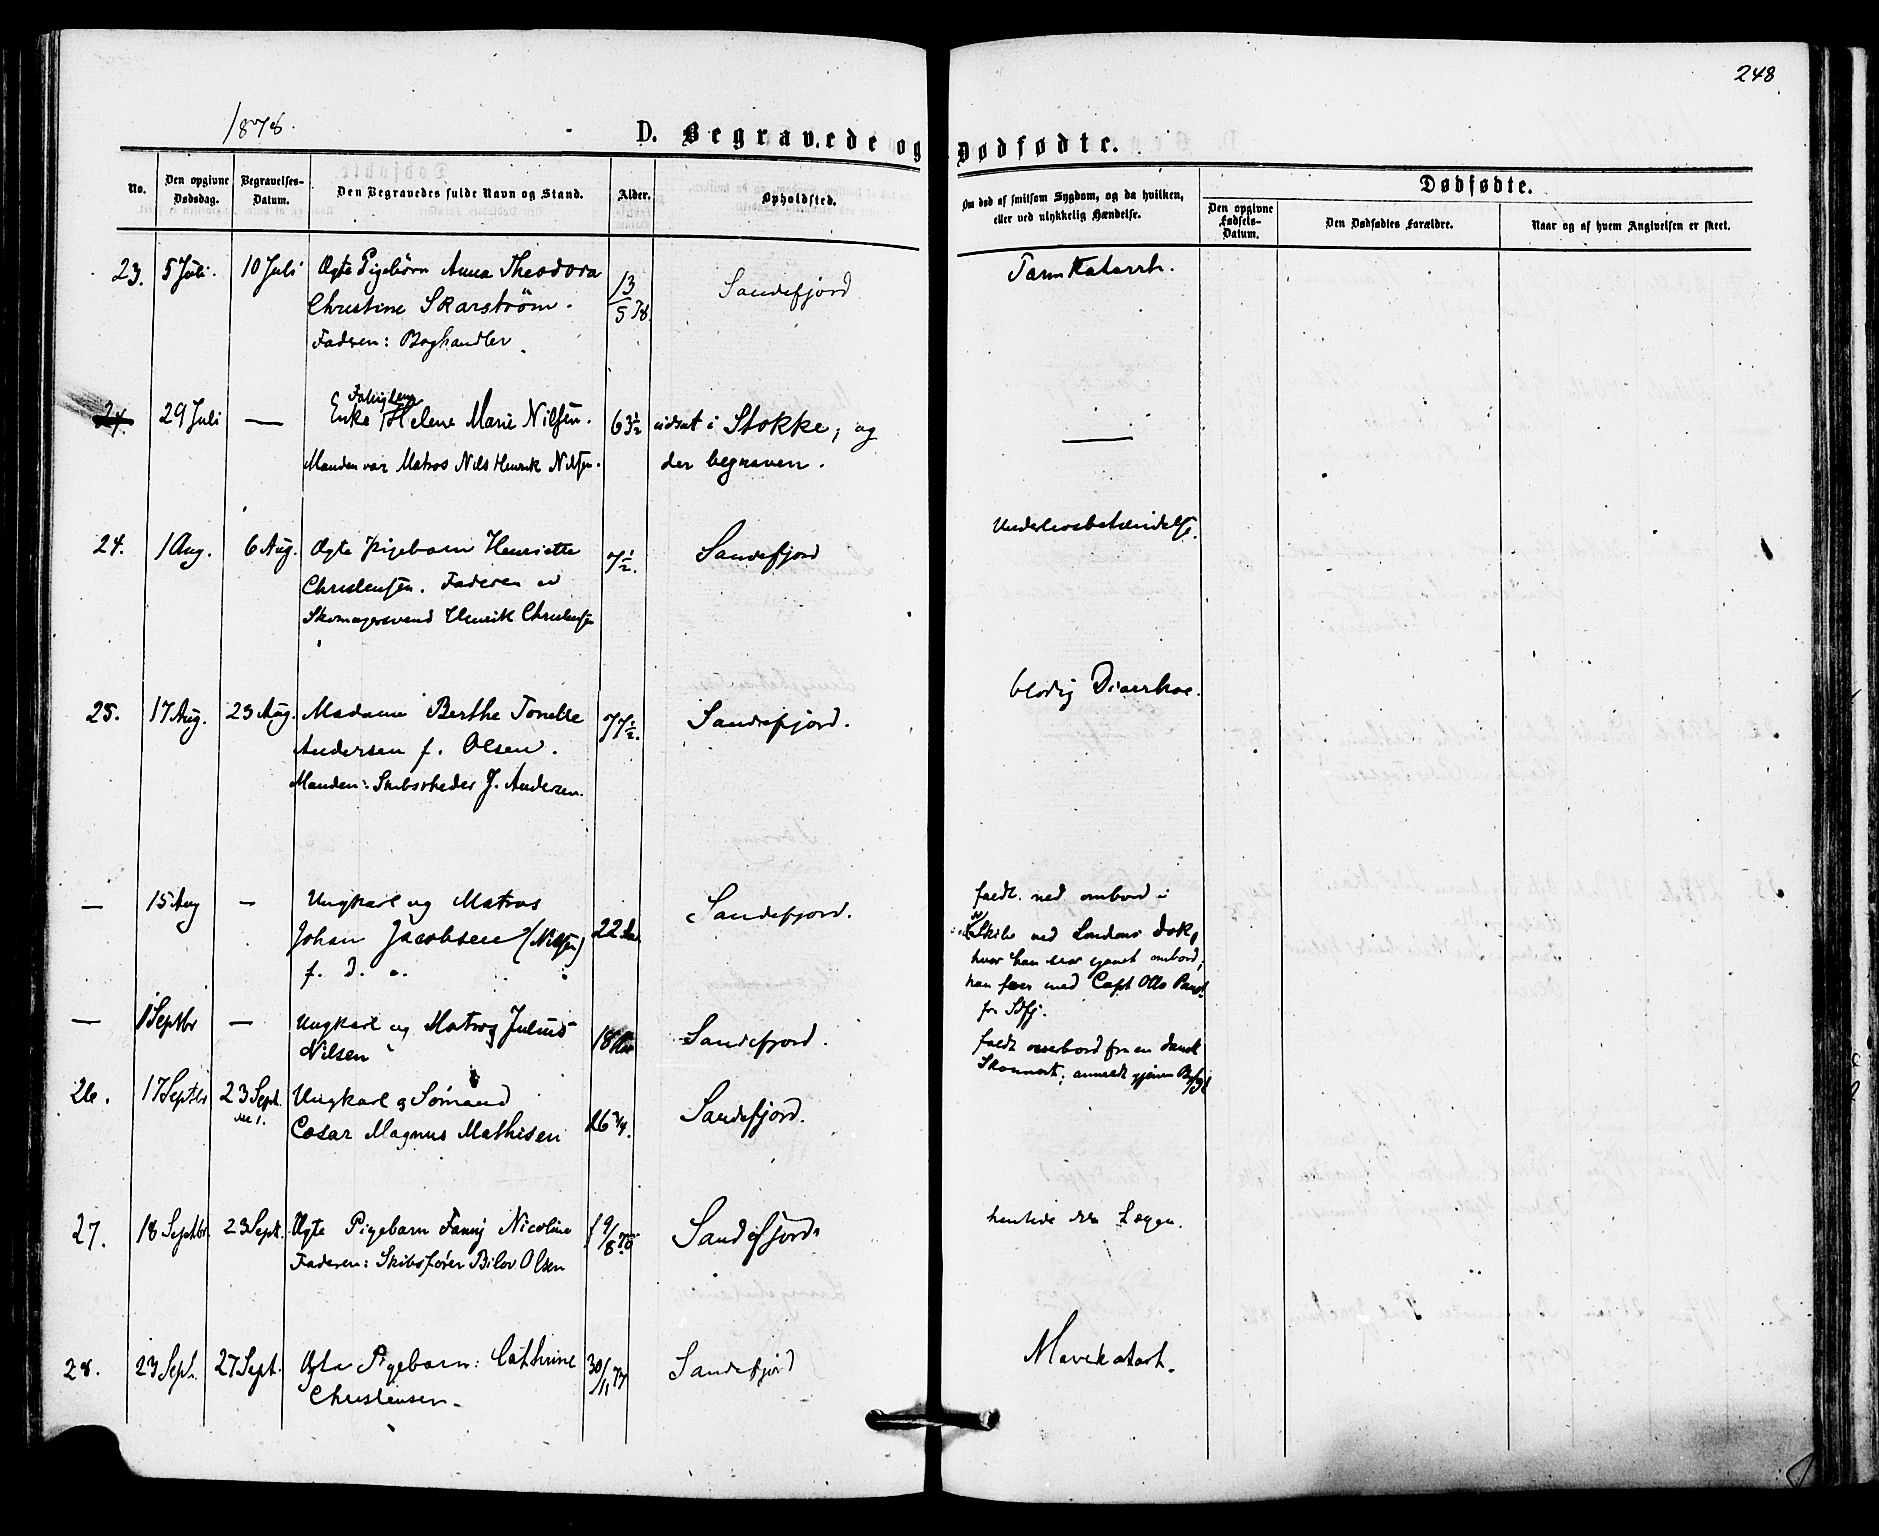 248
1878.
D. Begravede og Dødfødte.
No.
Den opgivne Dødsdag.
Begravelses-Datum.
Den Begravedes fulde Navn og Stand.
Alder.
Opholdsted.
Om død af smitsom Sygdom, og da hvilken,
eller ved ulykkelig Hændelse.
Dødfødte.
Den opgivne Fødsels-Datum.
Den Dødfødtes Forældre.
Naar og af hvem Angivelsen er skeet.
23. 5 Juli. 10 Juli Ægte Pigebørn Anna Theodora 13/5 78. Sandefjord Tarm Katarrh.
Christine Skarstrøm.
Fader en: Boghandler
24. 29 Juli — Enke Helene Marie Nilsen. 63½ udsat i Stokke, og —
Manden var Matros Nils Henrik Nilsen. der begraven.
24. 1 Aug. 6 Aug. Ægte Pigebarn Henriette 7½. Sandefjord Underlivsbetændelse.
Christensen. Faderen er
Skomagersvend Henrik Christensen
25. 17 Aug. 23 Aug. Madame Berthe Tonette 77½. Sandefjord. blodig Diarrhoe.
Andersen f. Olsen.
Manden: Skibsrheder J. Andersen.
— 15 Aug — Ungkarl og Matros 22 Sandefjord. faldt ned ombord i
Johan Jacobsen (Nilsen) Skibe ved Londons Dok,
f. D. hvor han var gaaet ombord,
han foer med Capt
for Sdfj.
— 1 Septbr — Ungkarl og Matros Julius 18 Sandefjord. faldt overbord fra en dansk
Nilsen Skonnert, anmeldt gjennem
26. 17 Septbr 23 Sept. Ungkarl og Sømand 26¾. Sandefjord.
Cæsar Magnus Mathisen
27. 18 Septbr. 23 Sept. Ægte Pigebarn Fanny Nicoline f 9/8 78 Sandefjord. hentede ikke Lægen.
Faderen: Skibsfører Olsen
28. 23 Sept. 27 Sept. Ægte Pigebarn: Cathrine 30/11 77 Sandefjord Mavekatarh.
Christensen.